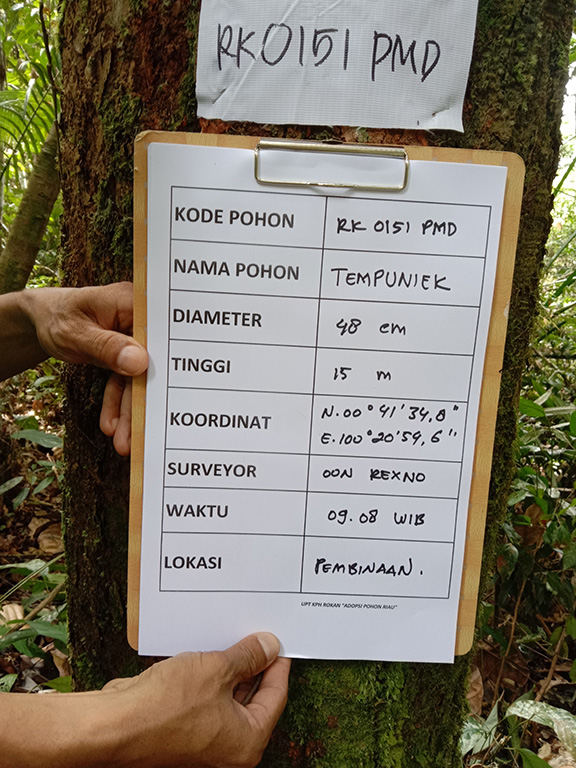 RK0151 PMD
KODE POHON RK 0151 PMD
NAMA POHON TEMPUNIEK
DIAMETER 48 cm
TINGGI 15 m
KOORDINAT N.00°41'34,8"
E.100°20'59,6"
SURVEYOR OON REXNO
WAKTU 09.08 WIB
LOKASI PEMBINAAN.
UPT KPH ROKAN "ADOPSI POHON RIAU"